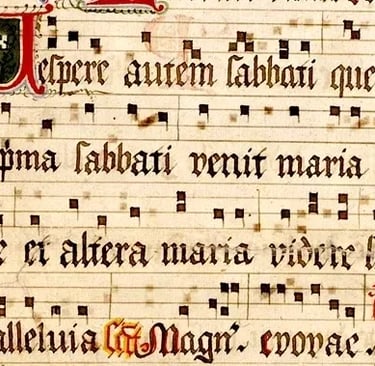 Vespere autem sabbati que
pma sabbati venit maria
e et altera maria videre s
alleluia Magn'. evovae.